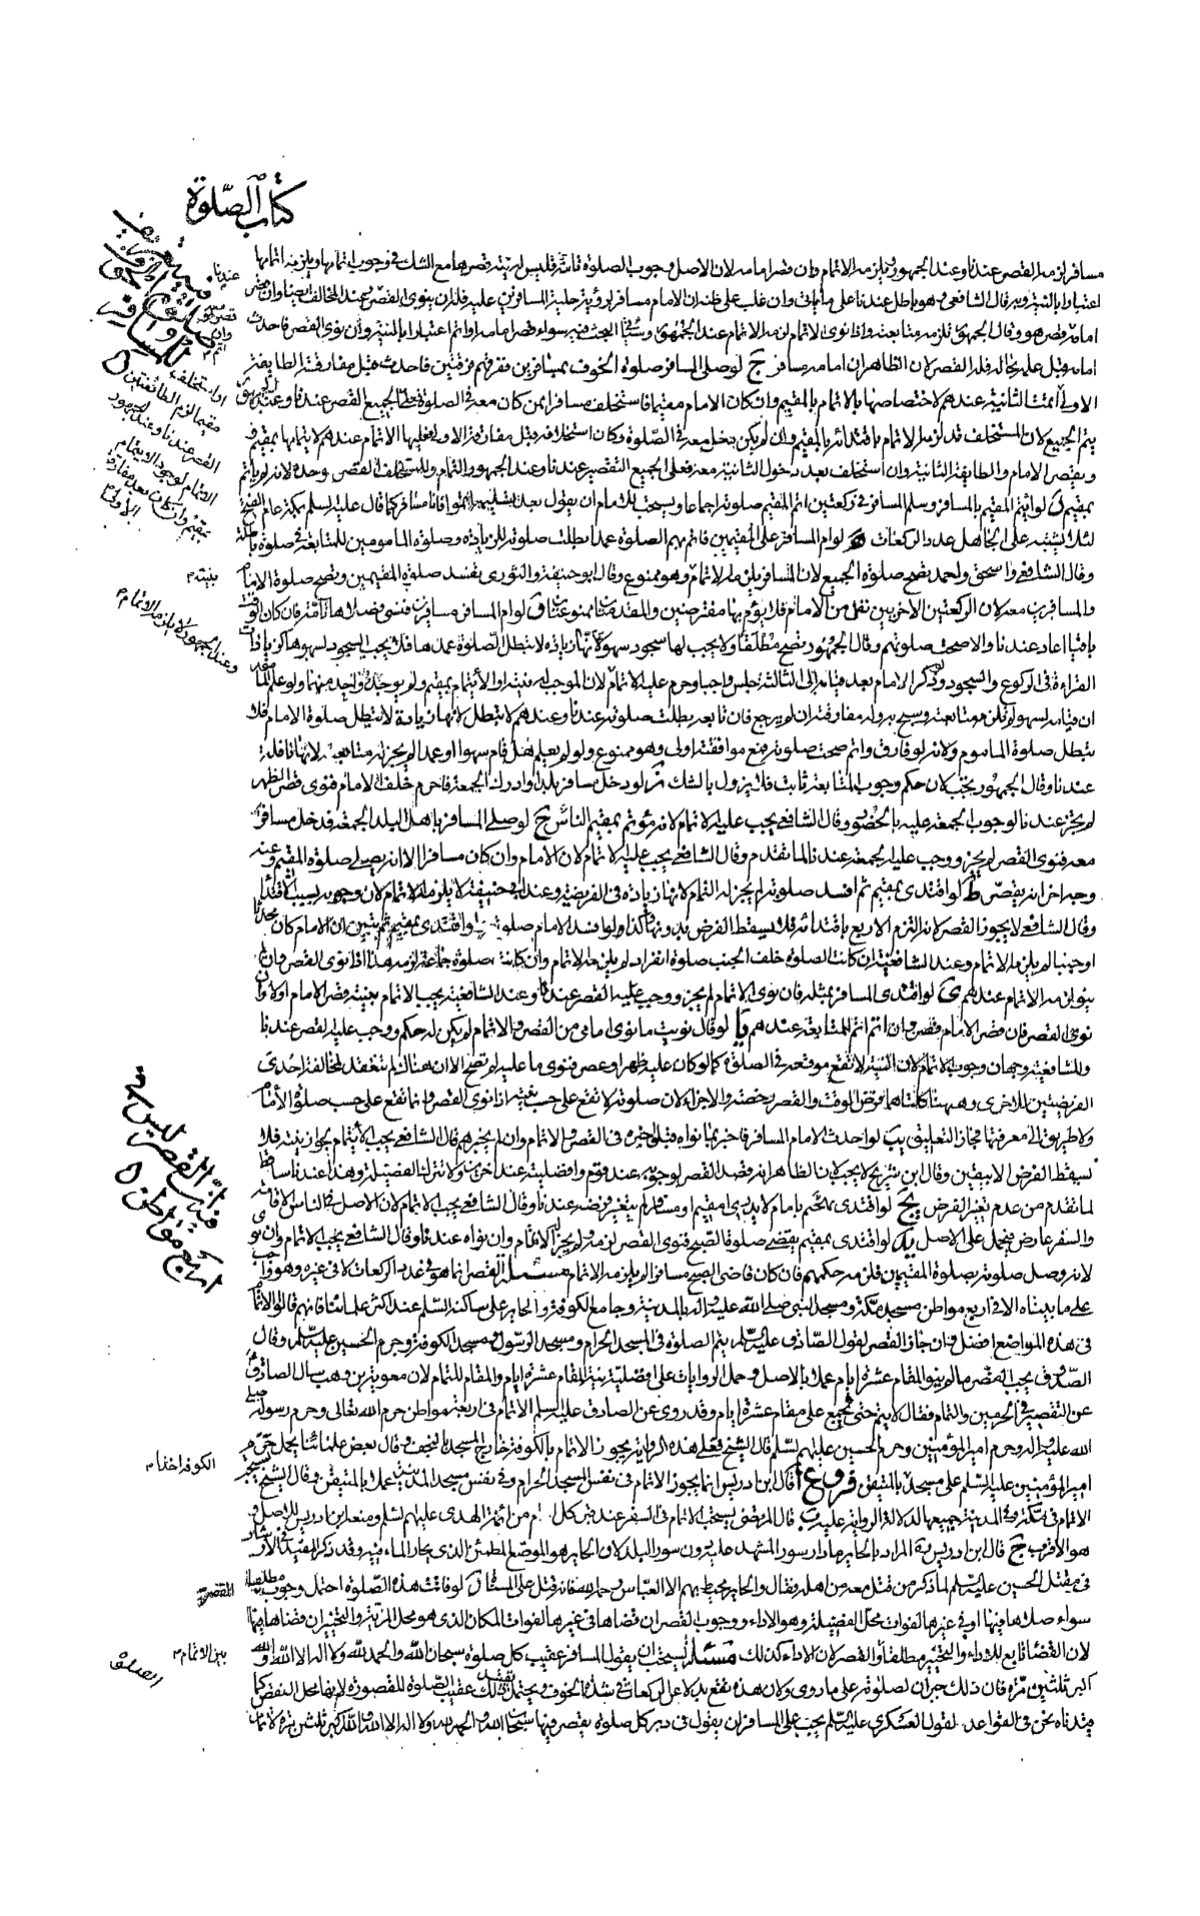 كتاب الصلوة
مسافر لزمه القصر عندنا وعند الجمهور يلزمه الاتمام وان قصر امامه لان الاصل وجوب الصلوة تامة فليس له نية قصرها مع الشك في وجوب اتمامها ويلزمه اتمامها
اعتبارا بالنية وبه قال الشافعي وهو باطل عندنا على ما يأتي وان غلب على ظنه ان الامام مسافر لرؤية حلية المسافرين عليه فله ان ينوى القصر عند المخالف ايضا وان
امامه قصر هو وقال الجمهور تلزمه متابعته واذا نوى الاتمام لزمه الاتمام عند الجمهور سواء قصر امامه او اتم اعتبارا بالنية وان نوى القصر فاحدث
امامه قبل علمه بحاله فله القصر لان الظاهر ان امامه مسافر ج لو صلى المسافر صلوة الخوف بمسافرين ففرقهم فرقتين فاحدث قبل مفارقة الطايفة
الاولى ائمت الثانية عندهم لاختصاصها بالايتمام بالمقيم وان كان الامام مقيما فاستخلف مسافرا ممن كان معه في الصلوة فعلى الجميع القصر عندنا وعند الجمهور
يتم الجميع لان المستخلف قد لزمه الاتمام باقتدائه بالمقيم وان لم يكن دخل معه في الصلوة وكان استخلافه قبل مفارقة الاولى فعليها الاتمام عندهم لايتمامها بمقيم
ويقصر الامام والطايفة الثانية وان استخلف بعد دخول الثانية معه فعلى الجميع التقصير عندنا وعند الجمهور التمام وللمستخلف القصر وحده لانه لم يأتم
بمقيم د لو ائتم المقيم بالمسافر وسلم المسافر في ركعتين اتم المقيم صلوته اجماعا ويستحب للامام ان يقول بعد تسليمه اتموا فانا مسافر كما قال عليه السلم بمكة عام الفتح
لئلا يشتبه على الجاهل عدد الركعات ه لو ام المسافر على المقيمين فاتم بهم الصلوة عمدا بطلت صلوته للزيادة وصلوة المامومين للمتابعة في صلوة باطلة
وقال الشافعي واسحق واحمد تصح صلوة الجميع لان المسافر يلزمه الاتمام وهو ممنوع وقال ابو حنيفة والثوري تفسد صلوة المقيمين وتصح صلوة الامام
والمسافرين معه لان الركعتين الاخريين نفل من الامام فلا يؤم بها مفترضين والمقدمتان ممنوعتان و لو ام المسافر مسافرين فنسى فصلاها تامة فان كان الوقت
باقيا اعاد عندنا والا صحت صلوتهم وقال الجمهور تصح مطلقا ولا يجب لها سجود سهو لانها زيادة لا تبطل الصلوة عمدها فلا يجب السجود لسهوها كزيادات
القراءة في الركوع والسجود ولو ذكر الامام بعد قيامه الى الثالثة جلس واجبا وحرم عليه الاتمام لان الموجب له نيته او الائتمام بمقيم ولم يوجد واحد منهما ولو علم الماموم
ان قيامه لسهو لم تلزمه متابعته وسبح به وله مفارقته ان لم يرجع فان تابعه بطلت صلوته عندنا وعندهم لا تبطل لانها زيادة لا تبطل صلوة الامام فلا
تبطل صلوة الماموم ولانه لو فارق واتم صحت صلوته فمع موافقته اولى وهو ممنوع ولو لم يعلم هل قام سهوا او عمدا لم يجز له متابعته لانها نافلة
عندنا وقال الجمهور يجب لان حكم وجوب المتابعة ثابت فلا يزول بالشك ز لو دخل مسافر بلدا وادرك الجمعة فاحرم خلف الامام فنوى قصر الظهر
لم يجز عندنا لوجوب الجمعة عليه بالحضور وقال الشافعي يجب عليه الاتمام لانه مؤتم بمقيم الثامن ح لو صلى المسافر باهل البلد الجمعة فدخل مسافر
معه فنوى القصر لم يجز ووجب عليه الجمعة عندنا لما تقدم وقال الشافعي يجب عليه الاتمام لان الامام وان كان مسافرا الا انه يصلى صلوة المقيم وعنه
وجه اخر انه يقصر ط لو اقتدى بمقيم ثم افسد صلوته لم يجز له التمام لانها زيادة في الفريضة وعند ابي حنيفة لا يلزمه الاتمام لان وجوبه لسبب الاقتداء
وقال الشافعي لا يجوز القصر لانه التزم الاربع باقتدائه فلا يسقط الفرض بدونها وكذا لو افسد الامام صلوته ولو اقتدى بمقيم ثم تبين ان الامام كان محدثا
او جنبا لم يلزمه الاتمام وعند الشافعية ان كانت الصلوة خلف الجنب صلوة انفراد لم يلزمه الاتمام وان كانت صلوة جماعة لزمه هذا اذا نوى القصر فان لم
ينو لزمه الاتمام عندهم ى لو اقتدى المسافر بمثله فان نوى الاتمام لم يجز ووجب عليه القصر عندنا وعند الشافعية يجب الاتمام بنيته قصر الامام او لا وان
نوى القصر فان قصر الامام قصر وان اتم اتم للمتابعة عندهم يا لو قال نويت ما نوى امامي من القصر والاتمام لم يكن له حكم ووجب عليه القصر عندنا
وللشافعية وجهان وجوب الاتمام لان النية لا تقع موقعه في الصلوة كما لو كان عليه ظهر وعصر فنوى ما عليه لم تصح الا ان هناك لم تنعقد لمخالفة احدى
الفريضتين للاخرى وههنا كلتاهما فرض الوقت والقصر رخصة والاجزاء لان صلوته لا تقع على حسب نيته اذا نوى القصر وانما تقع على حسب صلوة الامام
ولا طريق الى معرفتها فجاز التعليق يب لو احدث الامام المسافر فاخبر بما نواه قبل خبره في القصر والاتمام وان لم يخبرهم قال الشافعي يجب الاتمام بجواز نيته فلا
يسقط الفرض الا بيقين وقال ابن شريح لا يجب لان الظاهر انه قصد القصر لوجوبه عند قوم وافضليته عند اخرين ولا تترك الفضيلة وهذا عندنا ساقط
لما تقدم من عدم تغير الفرض يج لو اقتدى بامام لا يدرى امقيم او مسافر لم يتغير فرضه عندنا وقال الشافعي يجب الاتمام لان الاصل في الناس الاقامة
والسفر عارض فيحمل على الاصل يد لو اقتدى بمقيم يقضى صلوة الصبح فنوى القصر لزمه ولم يجز له الاتمام وان نواه عندنا وقال الشافعي يجب الاتمام وان نوى
لانه وصل صلوته بصلوة المقيمين فلزمه حكمهم فان كان قاضى الصبح مسافرا لم يلزمه الاتمام مسئلة القصر انما هو في عدد الركعات لا في غيره وهو واجب
على ما بيناه الا في اربع مواطن مسجد مكة ومسجد النبي صلى الله عليه واله بالمدينة وجامع الكوفة والحاير على ساكنه السلم عند اكثر علمائنا فانهم قالوا الاتمام
في هذه المواضع افضل وان جاز القصر لقول الصادق عليه السلم يتم الصلوة في المسجد الحرام ومسجد الرسول ومسجد الكوفة وحرم الحسين عليه السلم وقال
الصدوق يجب القصر ما لم ينو المقام عشرة ايام عملا بالاصل وحمل الروايات على افضلية نية المقام عشرة ايام والمقام للتمام لان معوية بن وهب سال الصادق
عن التقصير في الحرمين والتمام فقال لا يتم حتى يجمع على مقام عشرة ايام وقد روى عن الصادق عليه السلم الاتمام في اربعة مواطن حرم الله تعالى وحرم رسوله صلى
الله عليه واله وحرم امير المؤمنين وحرم الحسين عليهم السلم قال الشيخ فعلى هذه الرواية يجوز الاتمام بالكوفة خارج المسجد بالنجف وقال بعض علمائنا يحمل حرم
امير المؤمنين عليه السلم على مسجده بالمتيقن فروع ا قال ابن ادريس انما يجوز الاتمام في نفس المسجد الحرام وفي نفس مسجد المدينة عملا بالمتيقن وقال الشيخ يستحب
الاتمام في مكة وفي المدينة جميعها لدلالة الرواية عليه ب قال المرتضى يستحب الاتمام في السفر عند قبر كل امام من ائمة الهدى عليهم السلم ومنعه ابن ادريس للاصل و
هو الاقرب ج قال ابن ادريس المراد بالحاير ما دار سور المشهد عليه دون سور البلد لان الحاير هو الموضع المطمئن الذي يحار الماء فيه وقد ذكر المفيد في الارشاد
في مقتل الحسين عليه السلم لما ذكر من قتل معه من اهله فقال والحاير محيط بهم الا العباس رحمه الله فانه قتل على المسناة د لو فاتت هذه الصلوة احتمل وجوب مطلقا
سواء صلاها فيها او في غيرها لفوات محل الفضيلة وهو الاداء ووجوب القصر ان قضاها في غيرها لفوات المكان الذي هو محل المزية والتخيير ان قضاها فيها
لان القضاء تابع للاداء والتخيير مطلقا والقصر لان الاداء كذلك مسئلة يستحب ان يقول المسافر عقيب كل صلوة سبحان الله والحمد لله ولا اله الا الله والله
اكبر ثلثين مرة فان ذلك جبران لصلوته على ما روى ولان هذه تقع بدلا عن الركعات في شدة الخوف ويحتمل تقييد ذلك عقيب الصلوة المقصورة لانها محل النقص كما
قيدناه نحن في القواعد لقول العسكري عليه السلم يجب على المسافر ان يقول في دبر كل صلوة يقصر فيها سبحان الله والحمد لله ولا اله الا الله والله اكبر ثلثين مرة لاتمام
عندنا
او استخلف
مقيما لزم الطائفتين
القصر عندنا وعند الجمهور
الاتمام لوجود الايتمام
بمقيم وان كان بعد مفارقة
الاولى
بنيته
وعند الجمهور لا يلزمه الاتمام
في ان القصر ليس في
اربع مواطن
الكوفة اخذا
القصر
بين الاتمام
الصلوة